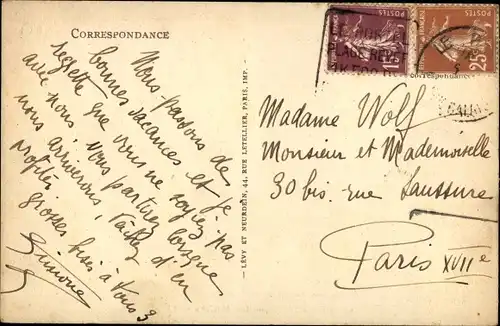 CORRESPONDANCE
Nous passons de
bonnes vacances et je
regrette que vous ne soyez pas
avec nous. Vous partirez lorsque
nous arriverons, tâchez d'en
profiter
grosses bises à Vous 3
Simone
LÉVY ET NEURDEIN, 44, RUE LETELLIER, PARIS, IMP.
15
25
Madame Wolf
Monsieur et Mademoiselle
30 bis. rue Saussure
Paris XVIIe